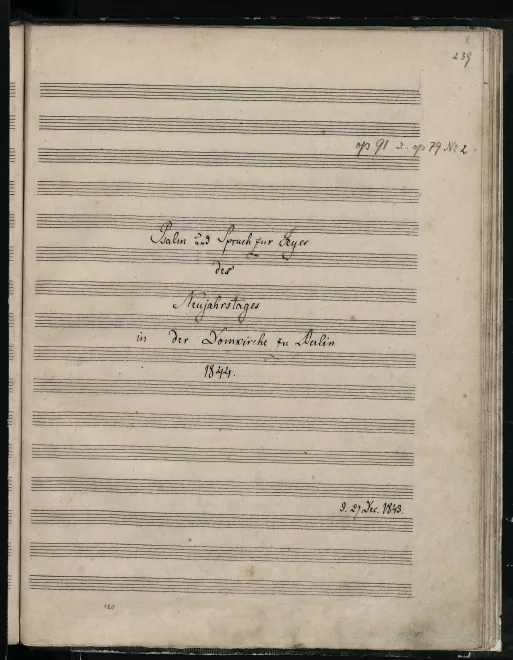 6
239
op 91 u. op 79 No 2
Psalm und Spruch zur Feyer
des
Neujahrstages
in der Domkirche zu Berlin
1844.
d. 27 Dec. 1843.
120